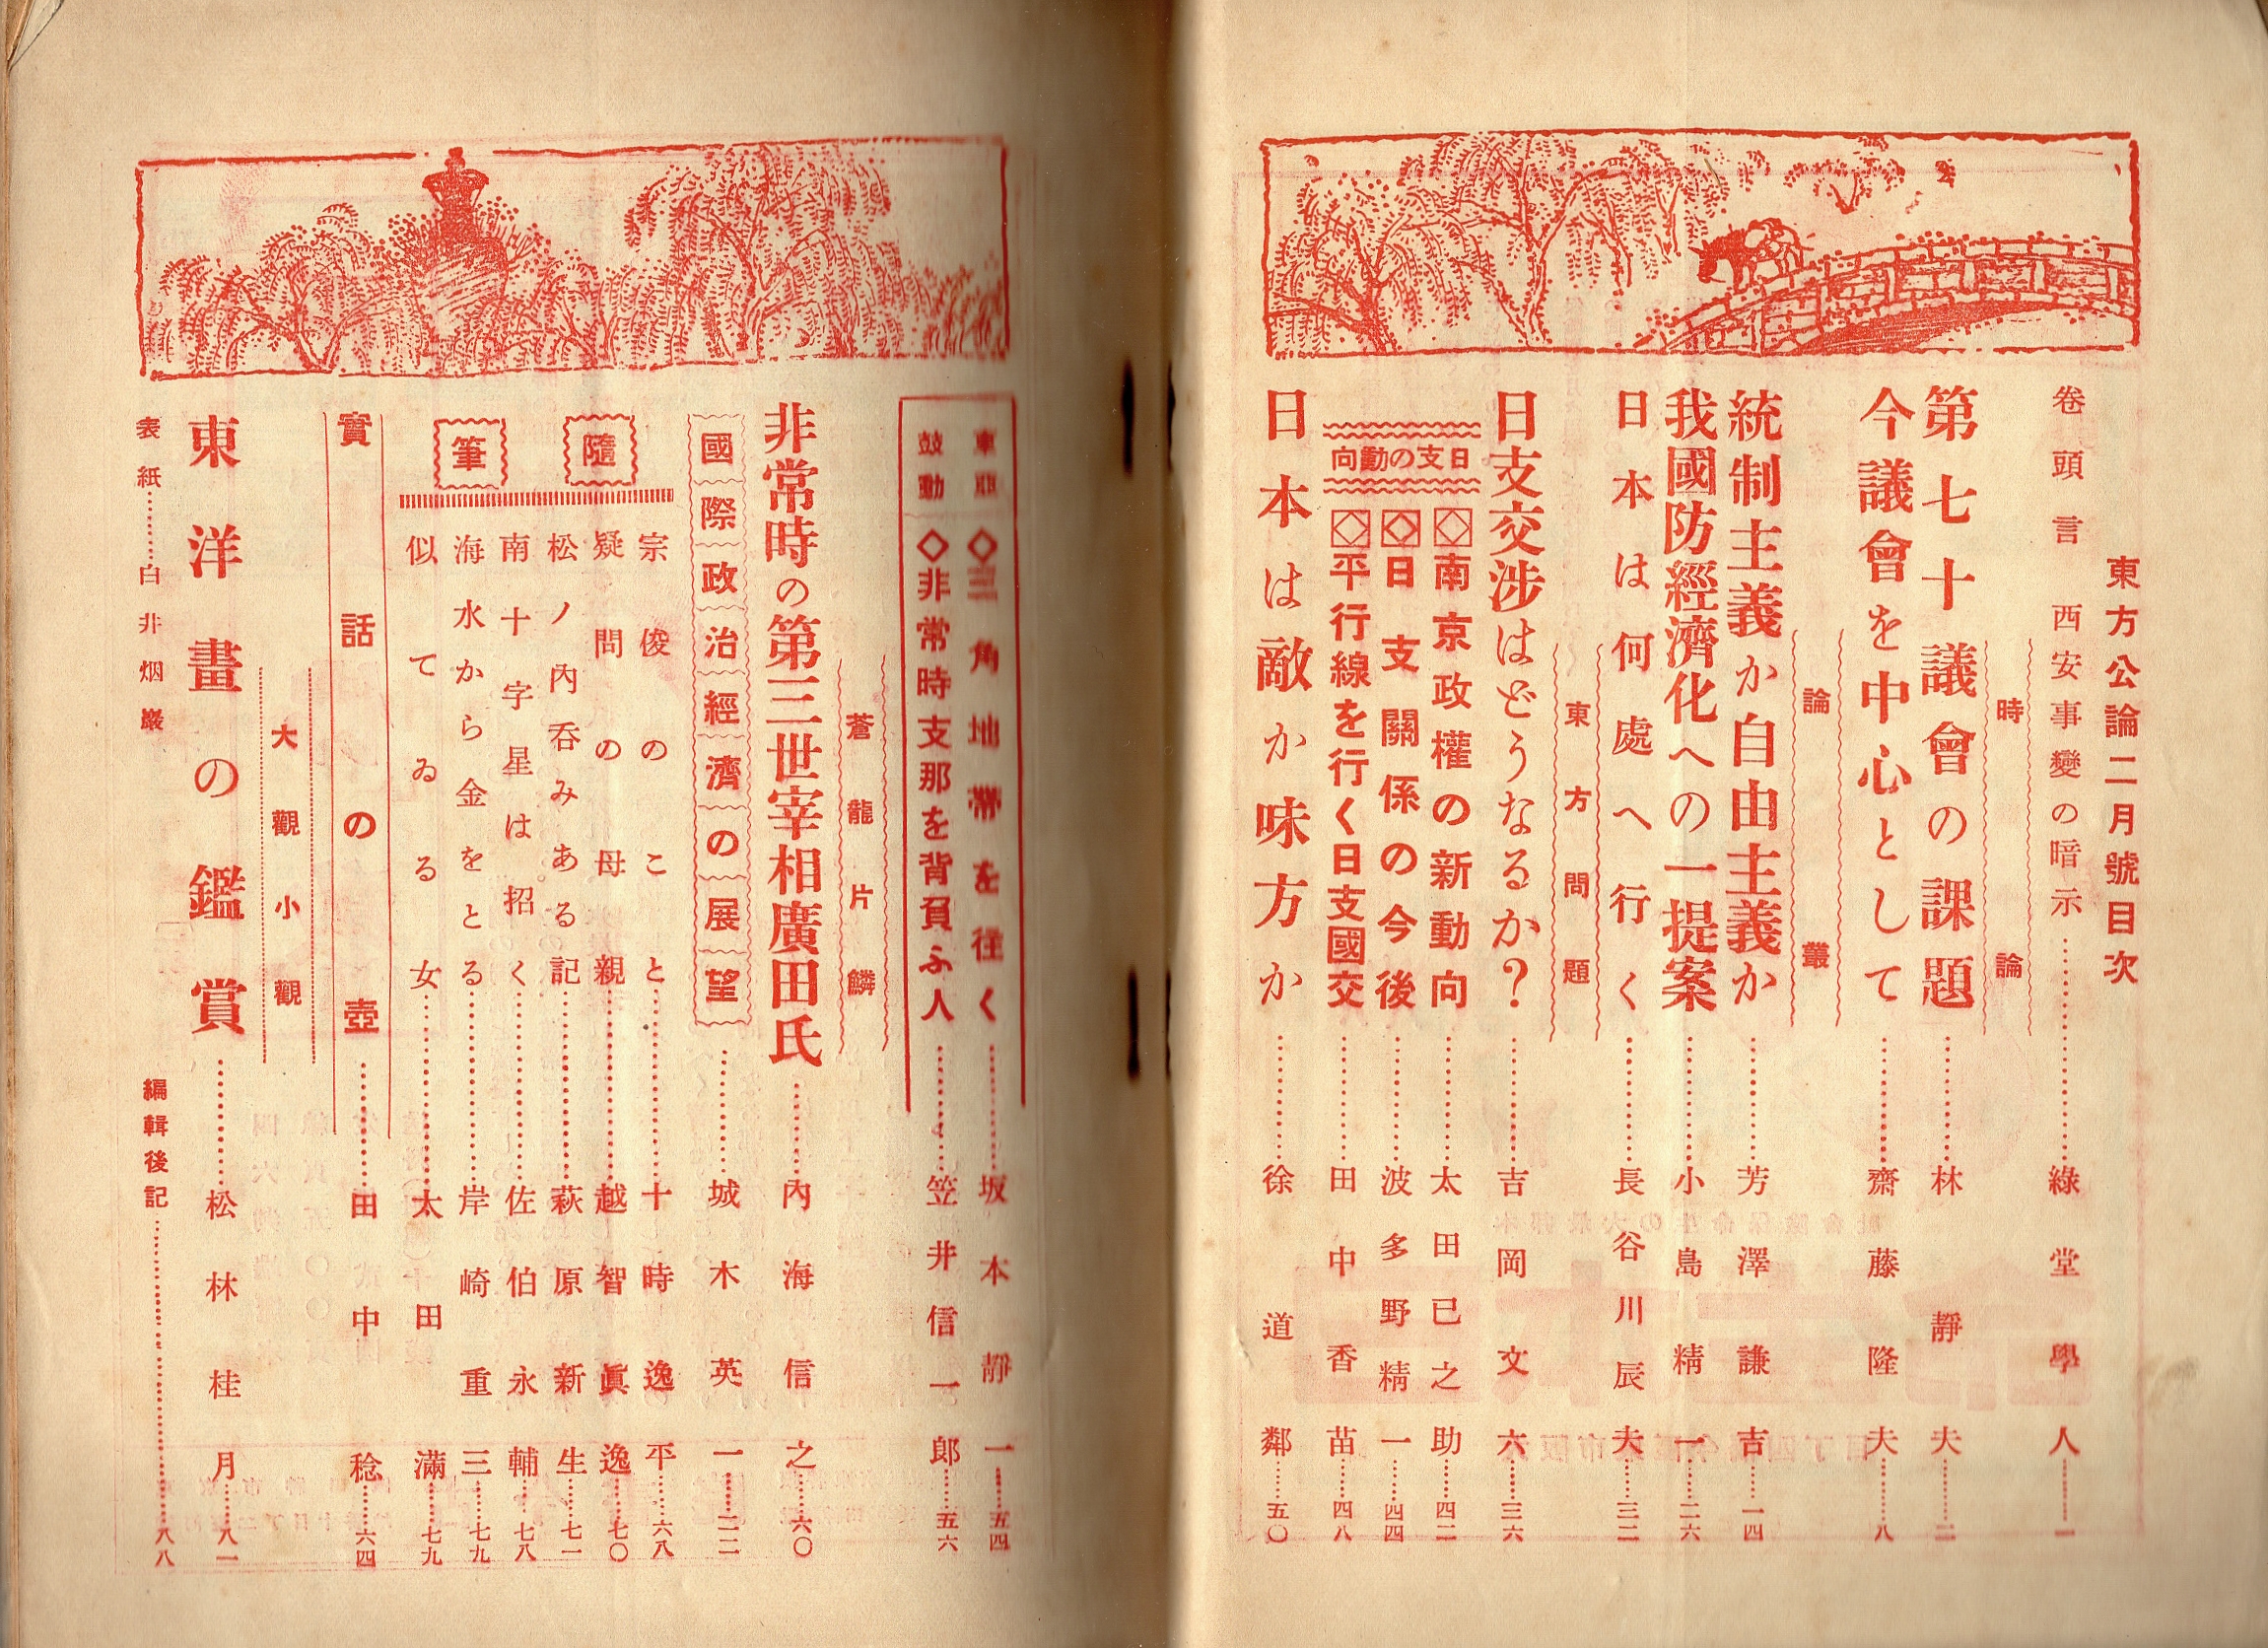 東方公論二月號目次
卷頭言 西安事變の暗示………綠堂學人……一
時論
第七十議會の課題………林靜夫……二
今議會を中心として………齋藤隆夫……八
論叢
統制主義か自由主義か………芳澤謙吉……一四
我國防經濟化への一提案………小島精一……二六
日本は何處へ行く………長谷川辰夫……三二
東方問題
日支交涉はどうなるか？………吉岡文六……三六
日支の動向
南京政權の新動向………太田已之助……四二
日支關係の今後………波多野精一……四四
平行線を行く日支國交………田中香苗……四八
日本は敵か味方か………徐道鄰……五〇
東亞鼓動
◇三角地帶を往く………坂本靜一……五四
◇非常時支那を背負ふ人………笠井信一郎……五六
蒼龍片鱗
非常時の第三世宰相廣田氏………內海信之……六〇
國際政治經濟の展望………城木英一……二二
隨筆
宗俊のこと………十時逸平……六八
疑問の母親………越智眞逸……七〇
松ノ內吞みある記………萩原新生……七一
南十字星は招く………佐伯永輔……七八
海水から金をとる………岸崎重三……七九
似てゐる女………太田滿……七九
實話の壺………田中稔……六四
大觀小觀
東洋畫の鑑賞………松林桂月……八一
表紙………白井烟巖
編輯後記………八八